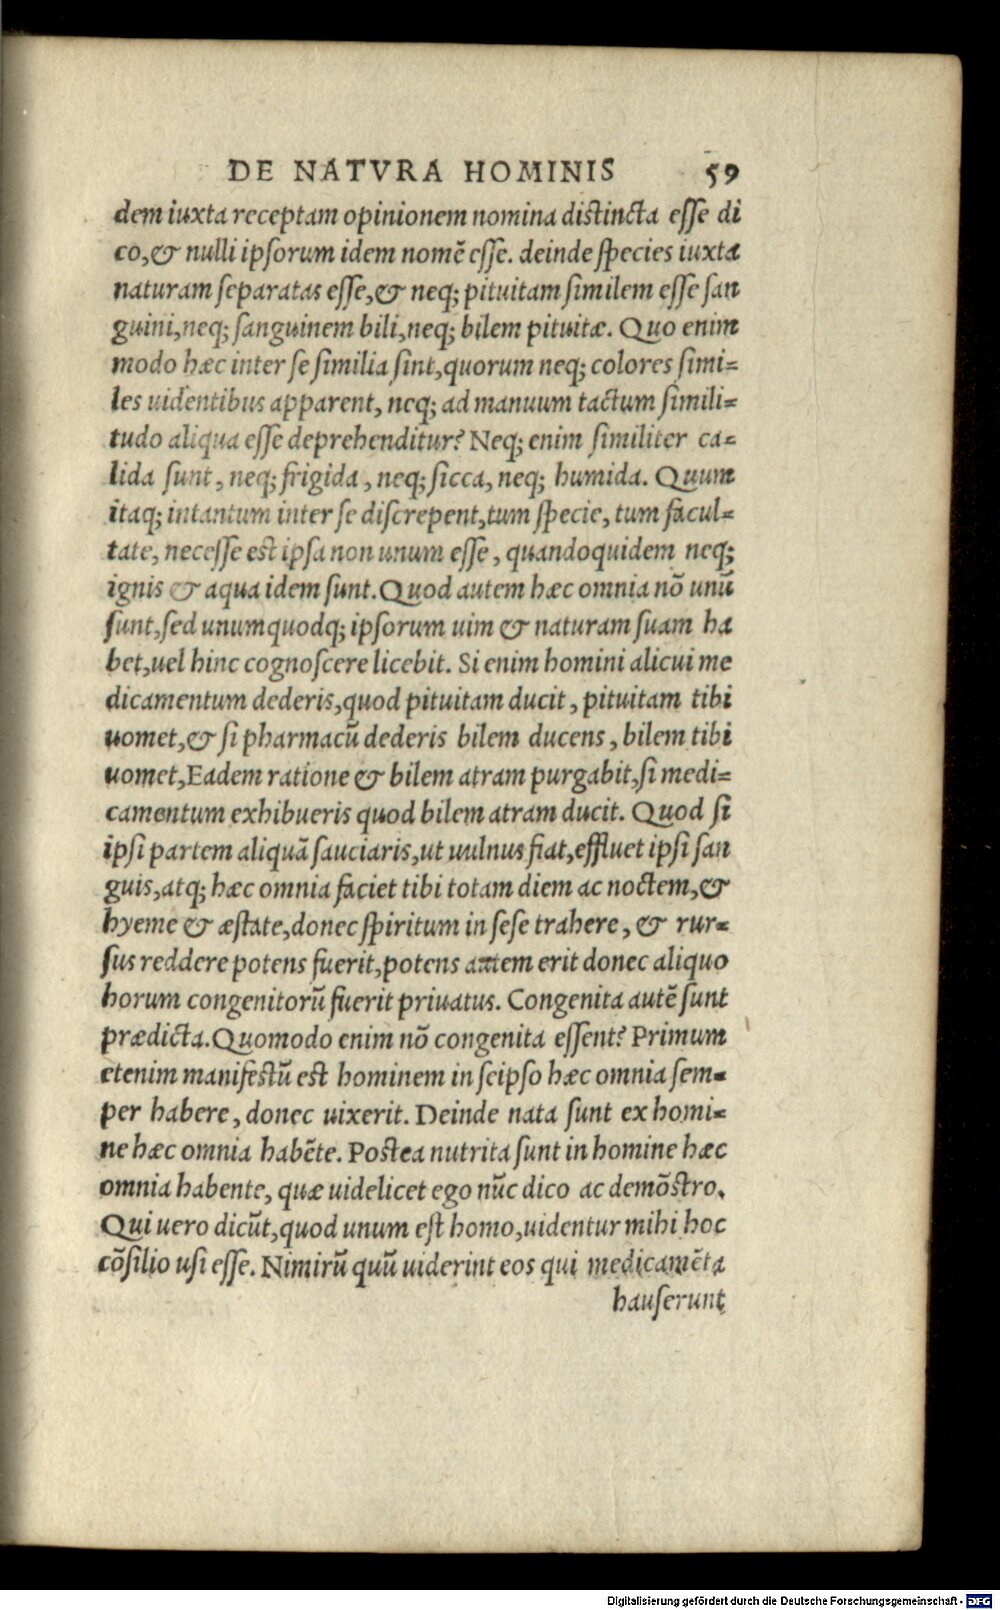 DE NATVRA HOMINIS 59
dem iuxta receptam opinionem nomina distincta esse di
co, & nulli ipsorum idem nomẽ esse. deinde species iuxta
naturam separatas esse, & neq; pituitam similem esse san
guini, neq; sanguinem bili, neq; bilem pituitæ. Quo enim
modo hæc inter se similia sint, quorum neq; colores simi=
les uidentibus apparent, neq; ad manuum tactum simili=
tudo aliqua esse deprehenditur? Neq; enim similiter ca=
lida sunt, neq; frigida, neq; sicca, neq; humida. Quum
itaq; intantum inter se discrepent, tum specie, tum facul=
tate, necesse est ipsa non unum esse, quandoquidem neq;
ignis & aqua idem sunt. Quod autem hæc omnia nõ unũ
sunt, sed unumquodq; ipsorum uim & naturam suam ha
bet, uel hinc cognoscere licebit. Si enim homini alicui me
dicamentum dederis, quod pituitam ducit, pituitam tibi
uomet, & si pharmacũ dederis bilem ducens, bilem tibi
uomet, Eadem ratione & bilem atram purgabit, si medi=
camentum exhibueris quod bilem atram ducit. Quod si
ipsi partem aliquã sauciaris, ut uulnus fiat, effluet ipsi san
guis, atq; hæc omnia faciet tibi totam diem ac noctem, &
hyeme & æstate, donec spiritum in sese trahere, & rur=
sus reddere potens fuerit, potens autem erit donec aliquo
horum congenitorũ fuerit priuatus. Congenita autẽ sunt
prædicta. Quomodo enim nõ congenita essent? Primum
etenim manifestũ est hominem in seipso hæc omnia sem=
per habere, donec uixerit. Deinde nata sunt ex homi=
ne hæc omnia habẽte. Postea nutrita sunt in homine hæc
omnia habente, quæ uidelicet ego nũc dico ac demõstro.
Qui uero dicũt, quod unum est homo, uidentur mihi hoc
cõsilio usi esse. Nimirũ quũ uiderint eos qui medicamẽta
hauserunt
Digitalisierung gefördert durch die Deutsche Forschungsgemeinschaft - DFG